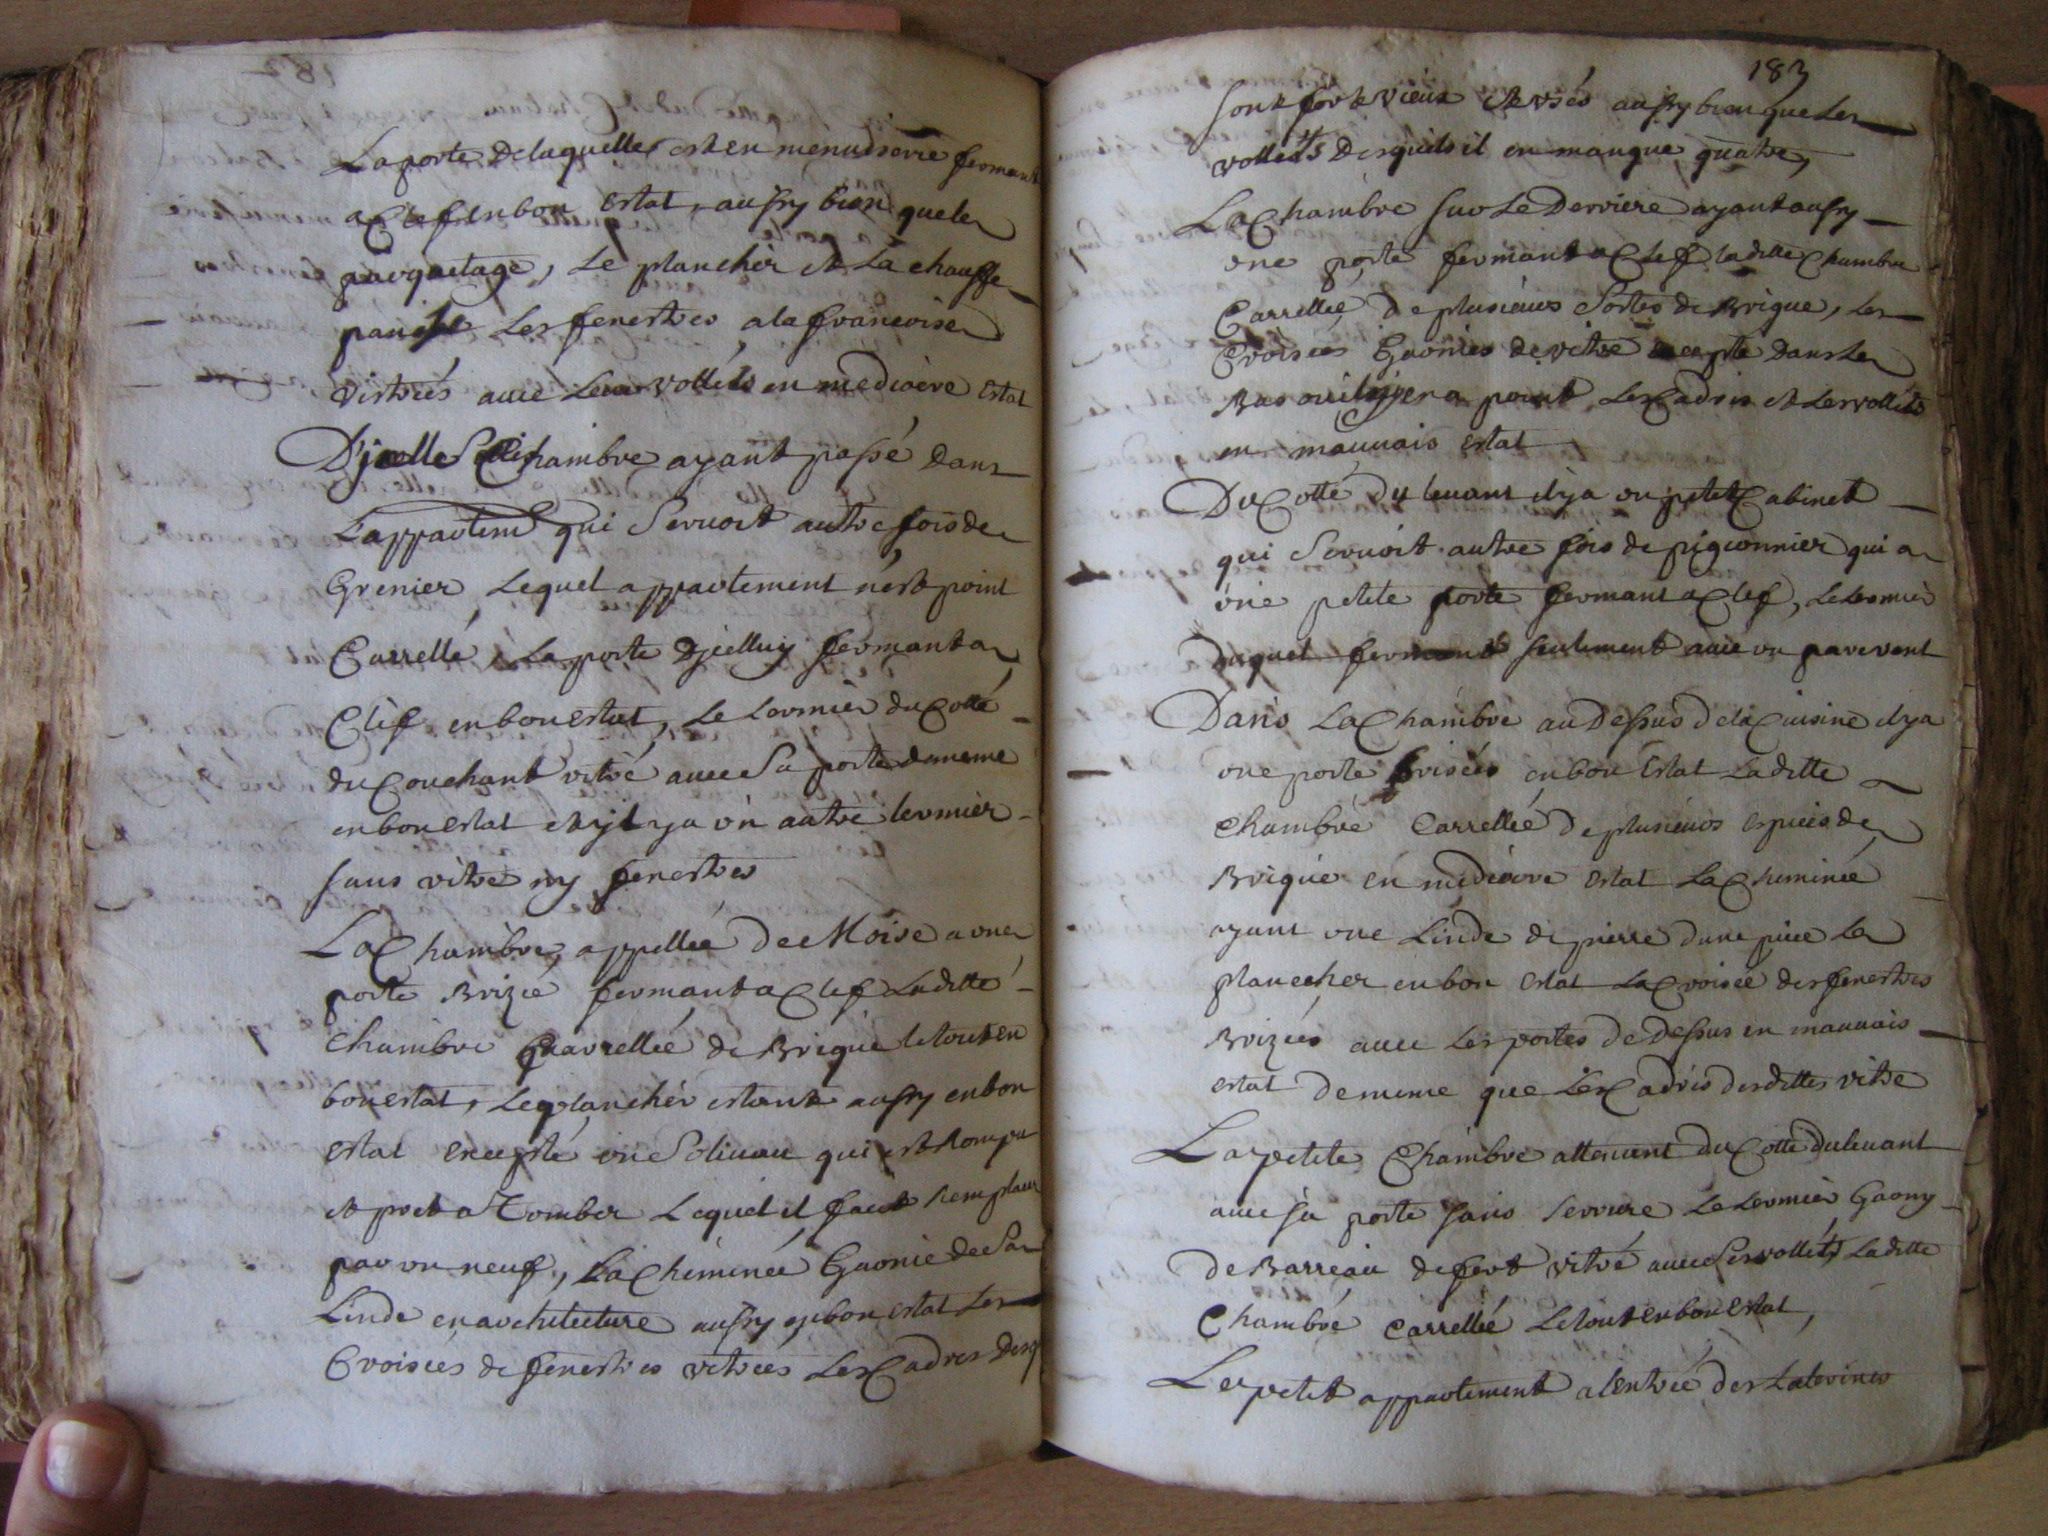 La porte Delaquelle est en menuiserie fermant
a Clef en bon estat, aussy bien que le
parquetage, Le plancher et La chauffe
panse Les fenestres ala francoise
vistrées avec Leur vollets en mediocre estat
D'jcelle Chambre ayant passé dans
L'appartemt qui Servoit autre fois de
Grenier, Lequel appartement n'est point
Carrellé, La porte Djcelluy fermant a
Clef en bon estat, Le Lormier du Cotté
du Couchant vitré avec Sa porte de meme
en bon estat et jl ya ùn autre lermier
sans vitre ny fenestres
La Chambre, appellée de Moise a une
porte Brizée fermant a Clef Laditte
chambre Quarrellée de Brique le tout en
bon estat, Le plancher estant aussy en bon
estat excepté ùn Soliuau qui est Rompu
et pret a Tomber Lequel il faut Remplacer
par un neuf, La Cheminée Guarnie de Sa
Linde en architecture aussy en bon estat Les
Croisées de fenestres vitrées Les Cadres Desq
183
sont fort vieux et vsés aussy bien que Les
vollets Desquels il en manque quatre,
La Chambre sur Le Derriere ayant aussy
une porte fermant a Clef laditte Chambre
Carrellée de plusieurs Sortes de Brique, Les
Croisées Guarnies de vitre excepte Dans Le
Bas ou il ny en a point Les Cadres et Les vollets
en mauvais estat
Du Cotté du levant il ya un petit Cabinet
qui Servoit autre fois de pigeonnier qui a
ùne petite porte fermant a Clef, Le Lermier
Duquel fermant seulement avec un parevent
Dans La Chambre au Dessus de la Cuisine il ya
une porte brisées en bon Estat Laditte
Chambre Carrellée de plusieurs especes de
Brique en mediocre estat La Cheminée
ayant une Linde de pierre dune piece Le
plancher en bon estat La Croisée des fenestres
Brizées avec Les portes de Dessus en mauvais
estat de meme que Les Cadres desdittes vitre
La petite Chambre attenant du Cotté du levant
avec sa porte sans serrure Le Lermier Guarny
de Barreau de fert vitré avec Ses vollets Laditte
Chambre carrellée Le tout en bon Estat,
Le petit appartement a lentrée des Latrines